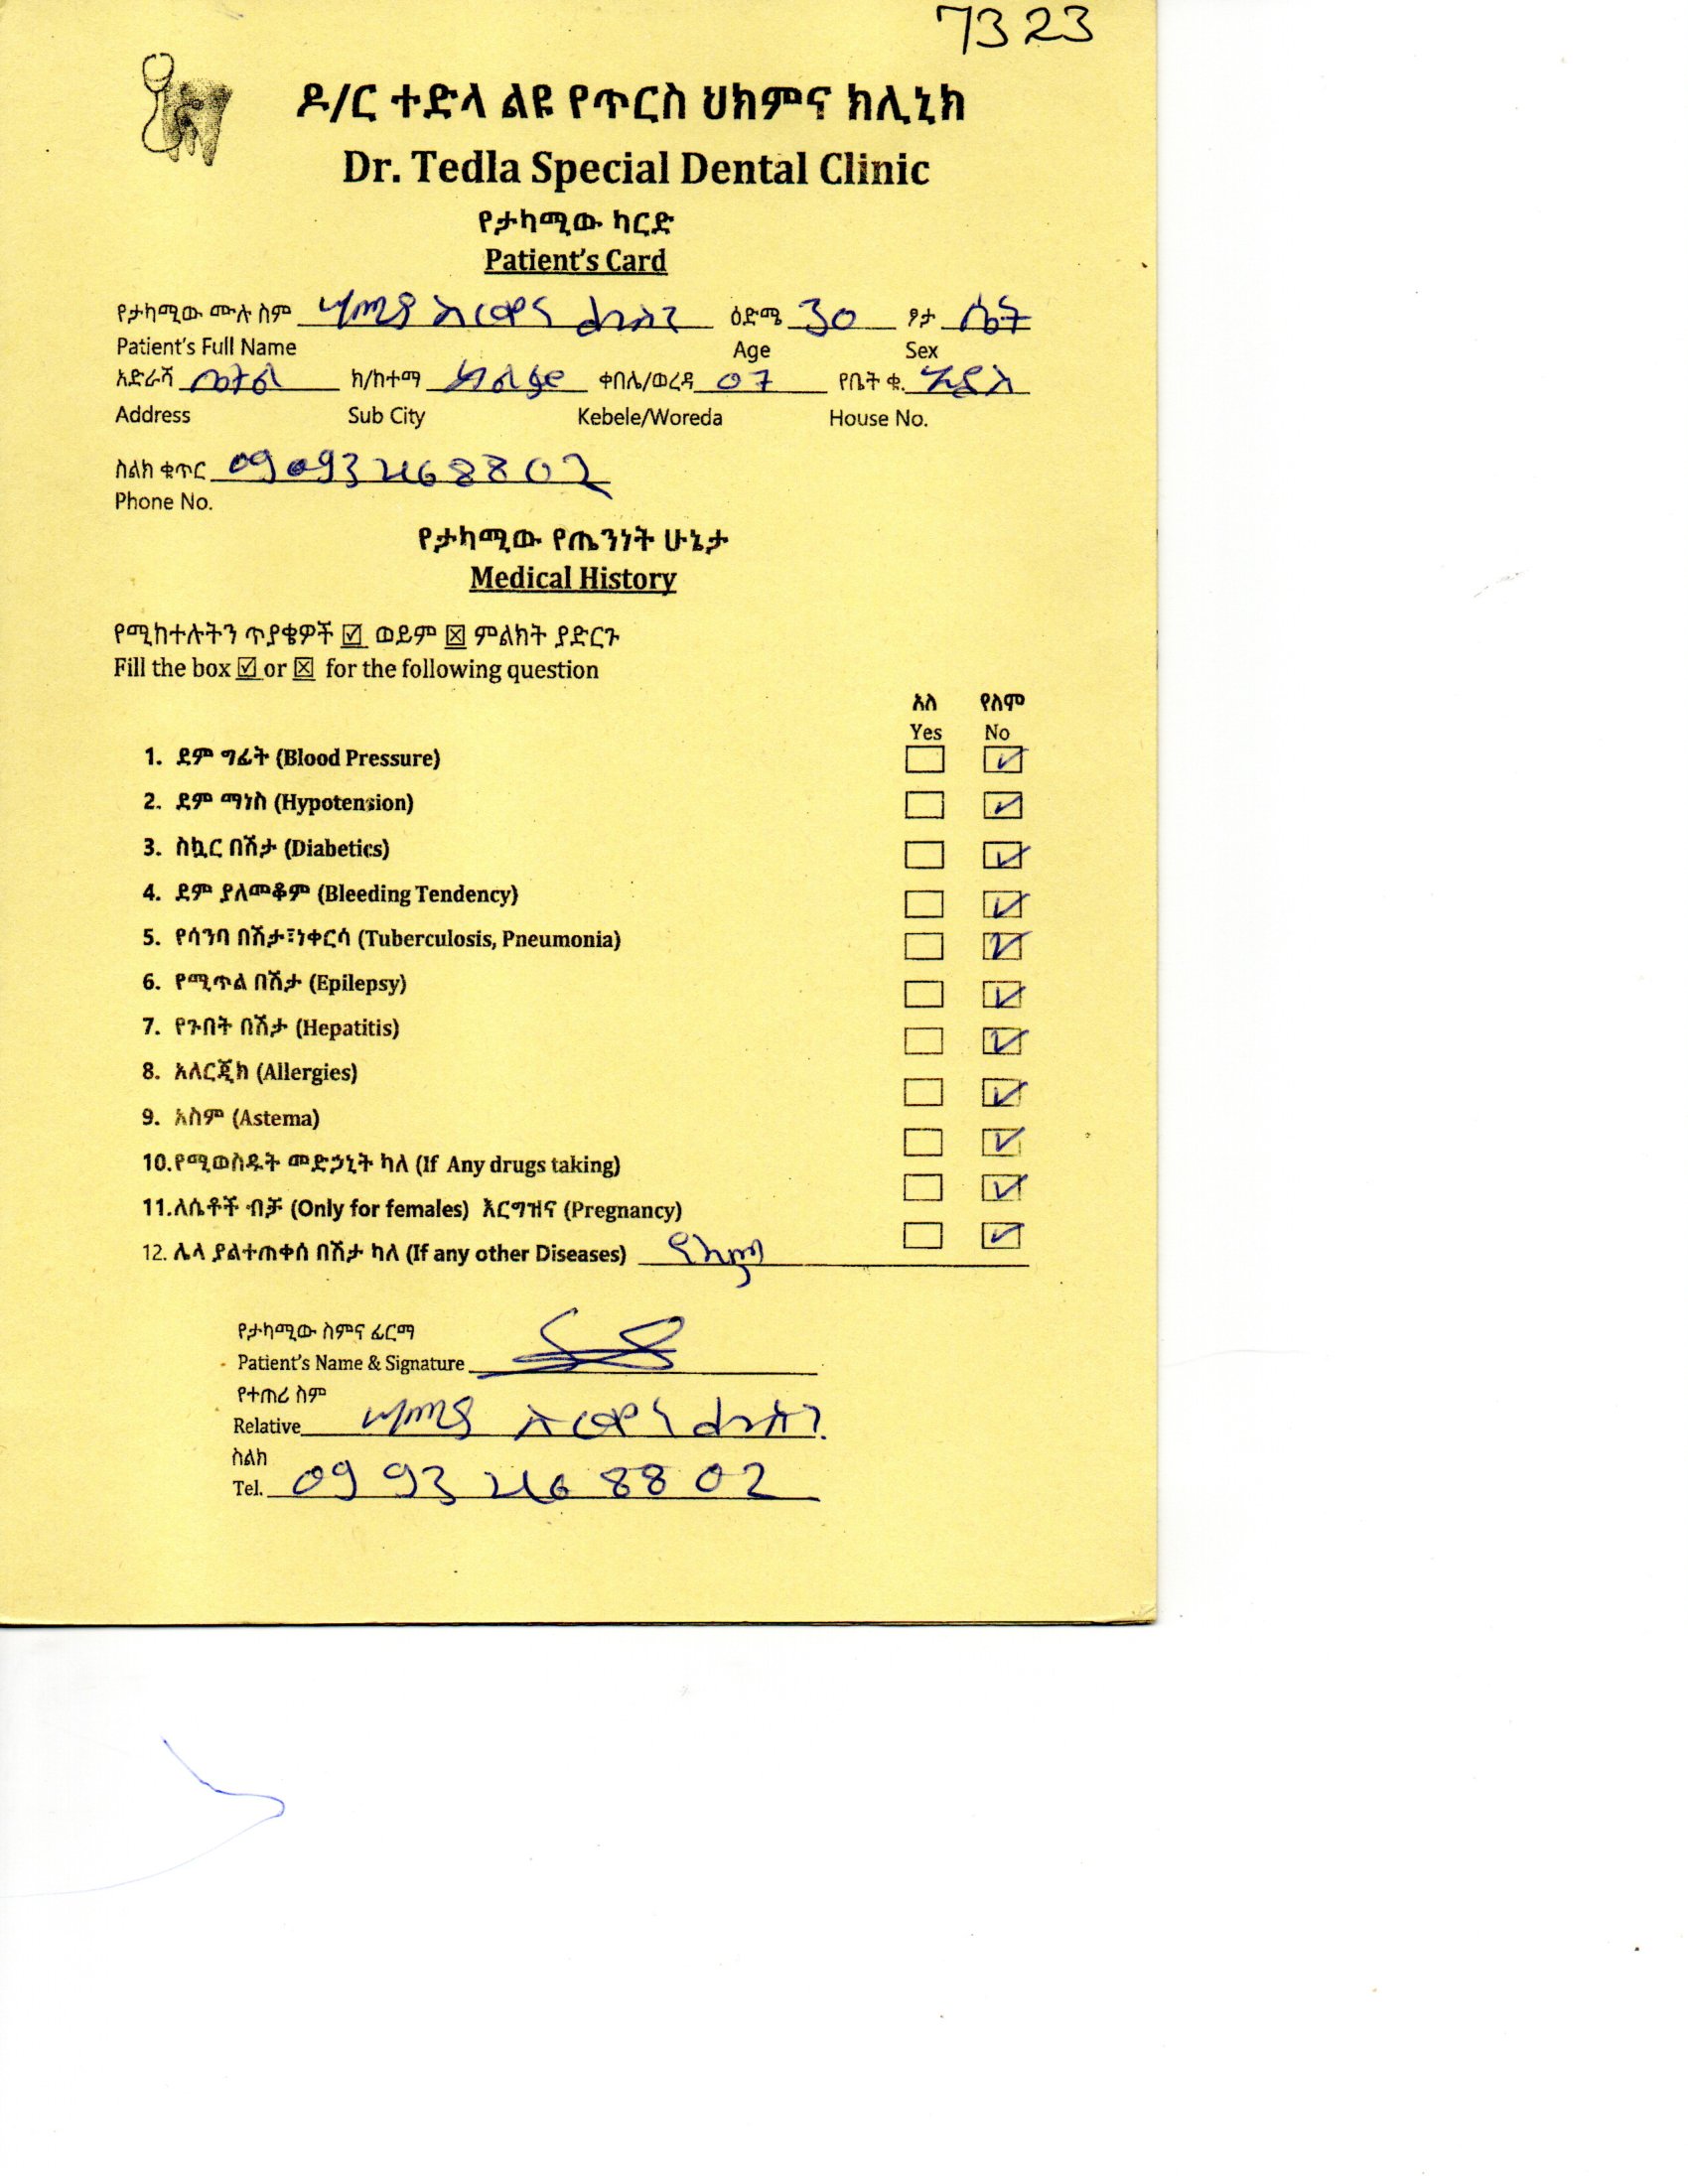 7323
ዶ/ር ተድላ ልዩ የጥርስ ህክምና ክሊኒክ
Dr. Tedla Special Dental Clinic
የታካሚው ካርድ
Patient's Card
የታካሚው ሙሉ ስም ዕድሜ 30 ፆታ ሴት
Patient's Full Name Age Sex
አድራሻ ክ/ከተማ ቀበሌ/ወረዳ 07 የቤት ቁ. አዲስ
Address Sub City Kebele/Woreda House No.
ስልክ ቁጥር
Phone No.
የታካሚው የጤንነት ሁኔታ
Medical History
የሚከተሉትን ጥያቄዎች ☑ ወይም ☒ ምልክት ያድርጉ
Fill the box ☑ or ☒ for the following question
አለ የለም
Yes No
1. ደም ግፊት (Blood Pressure) ☐ ☑
2. ደም ማነስ (Hypotension) ☐ ☑
3. ስኳር በሽታ (Diabetics) ☐ ☑
4. ደም ያለመቆም (Bleeding Tendency) ☐ ☑
5. የሳንባ በሽታ፣ነቀርሳ (Tuberculosis, Pneumonia) ☐ ☑
6. የሚጥል በሽታ (Epilepsy) ☐ ☑
7. የጉበት በሽታ (Hepatitis) ☐ ☑
8. አለርጂክ (Allergies) ☐ ☑
9. አስም (Astema) ☐ ☑
10.የሚወስዱት መድኃኒት ካለ (If Any drugs taking) ☐ ☑
11.ለሴቶች ብቻ (Only for females) እርግዝና (Pregnancy) ☐ ☑
12. ሌላ ያልተጠቀሰ በሽታ ካለ (If any other Diseases) የለም
የታካሚው ስምና ፊርማ
Patient's Name & Signature
የተጠሪ ስም
Relative
ስልክ
Tel. 09 93 46 88 02